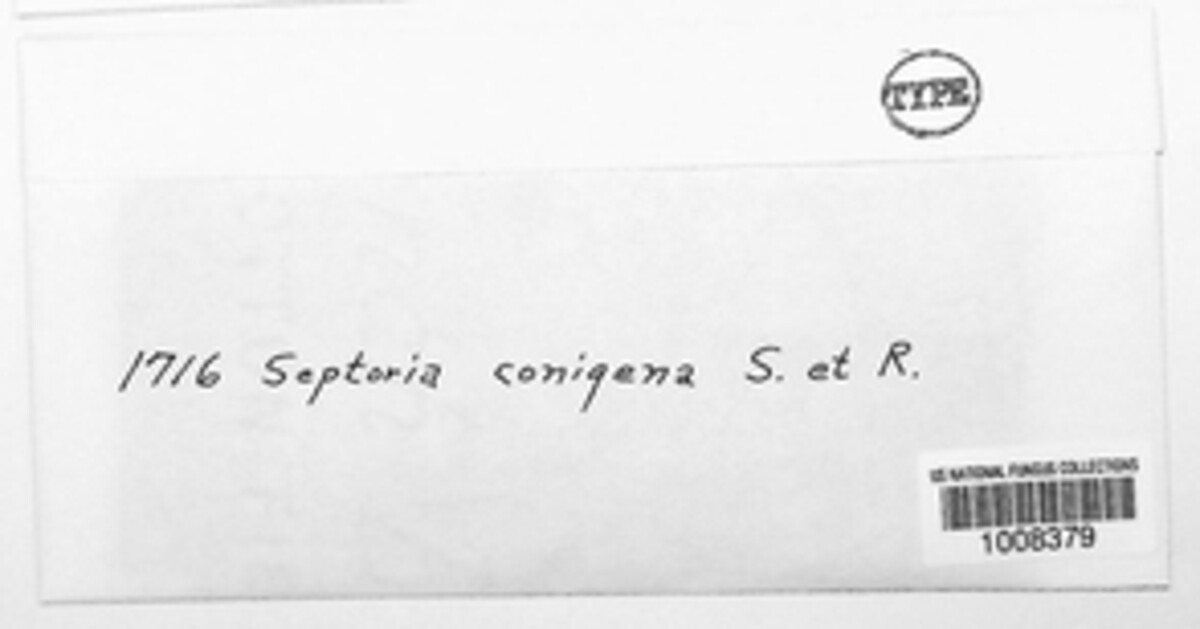 TYPE
1716 Septoria conigena S. et R.
US NATIONAL FUNGUS COLLECTIONS
1008379